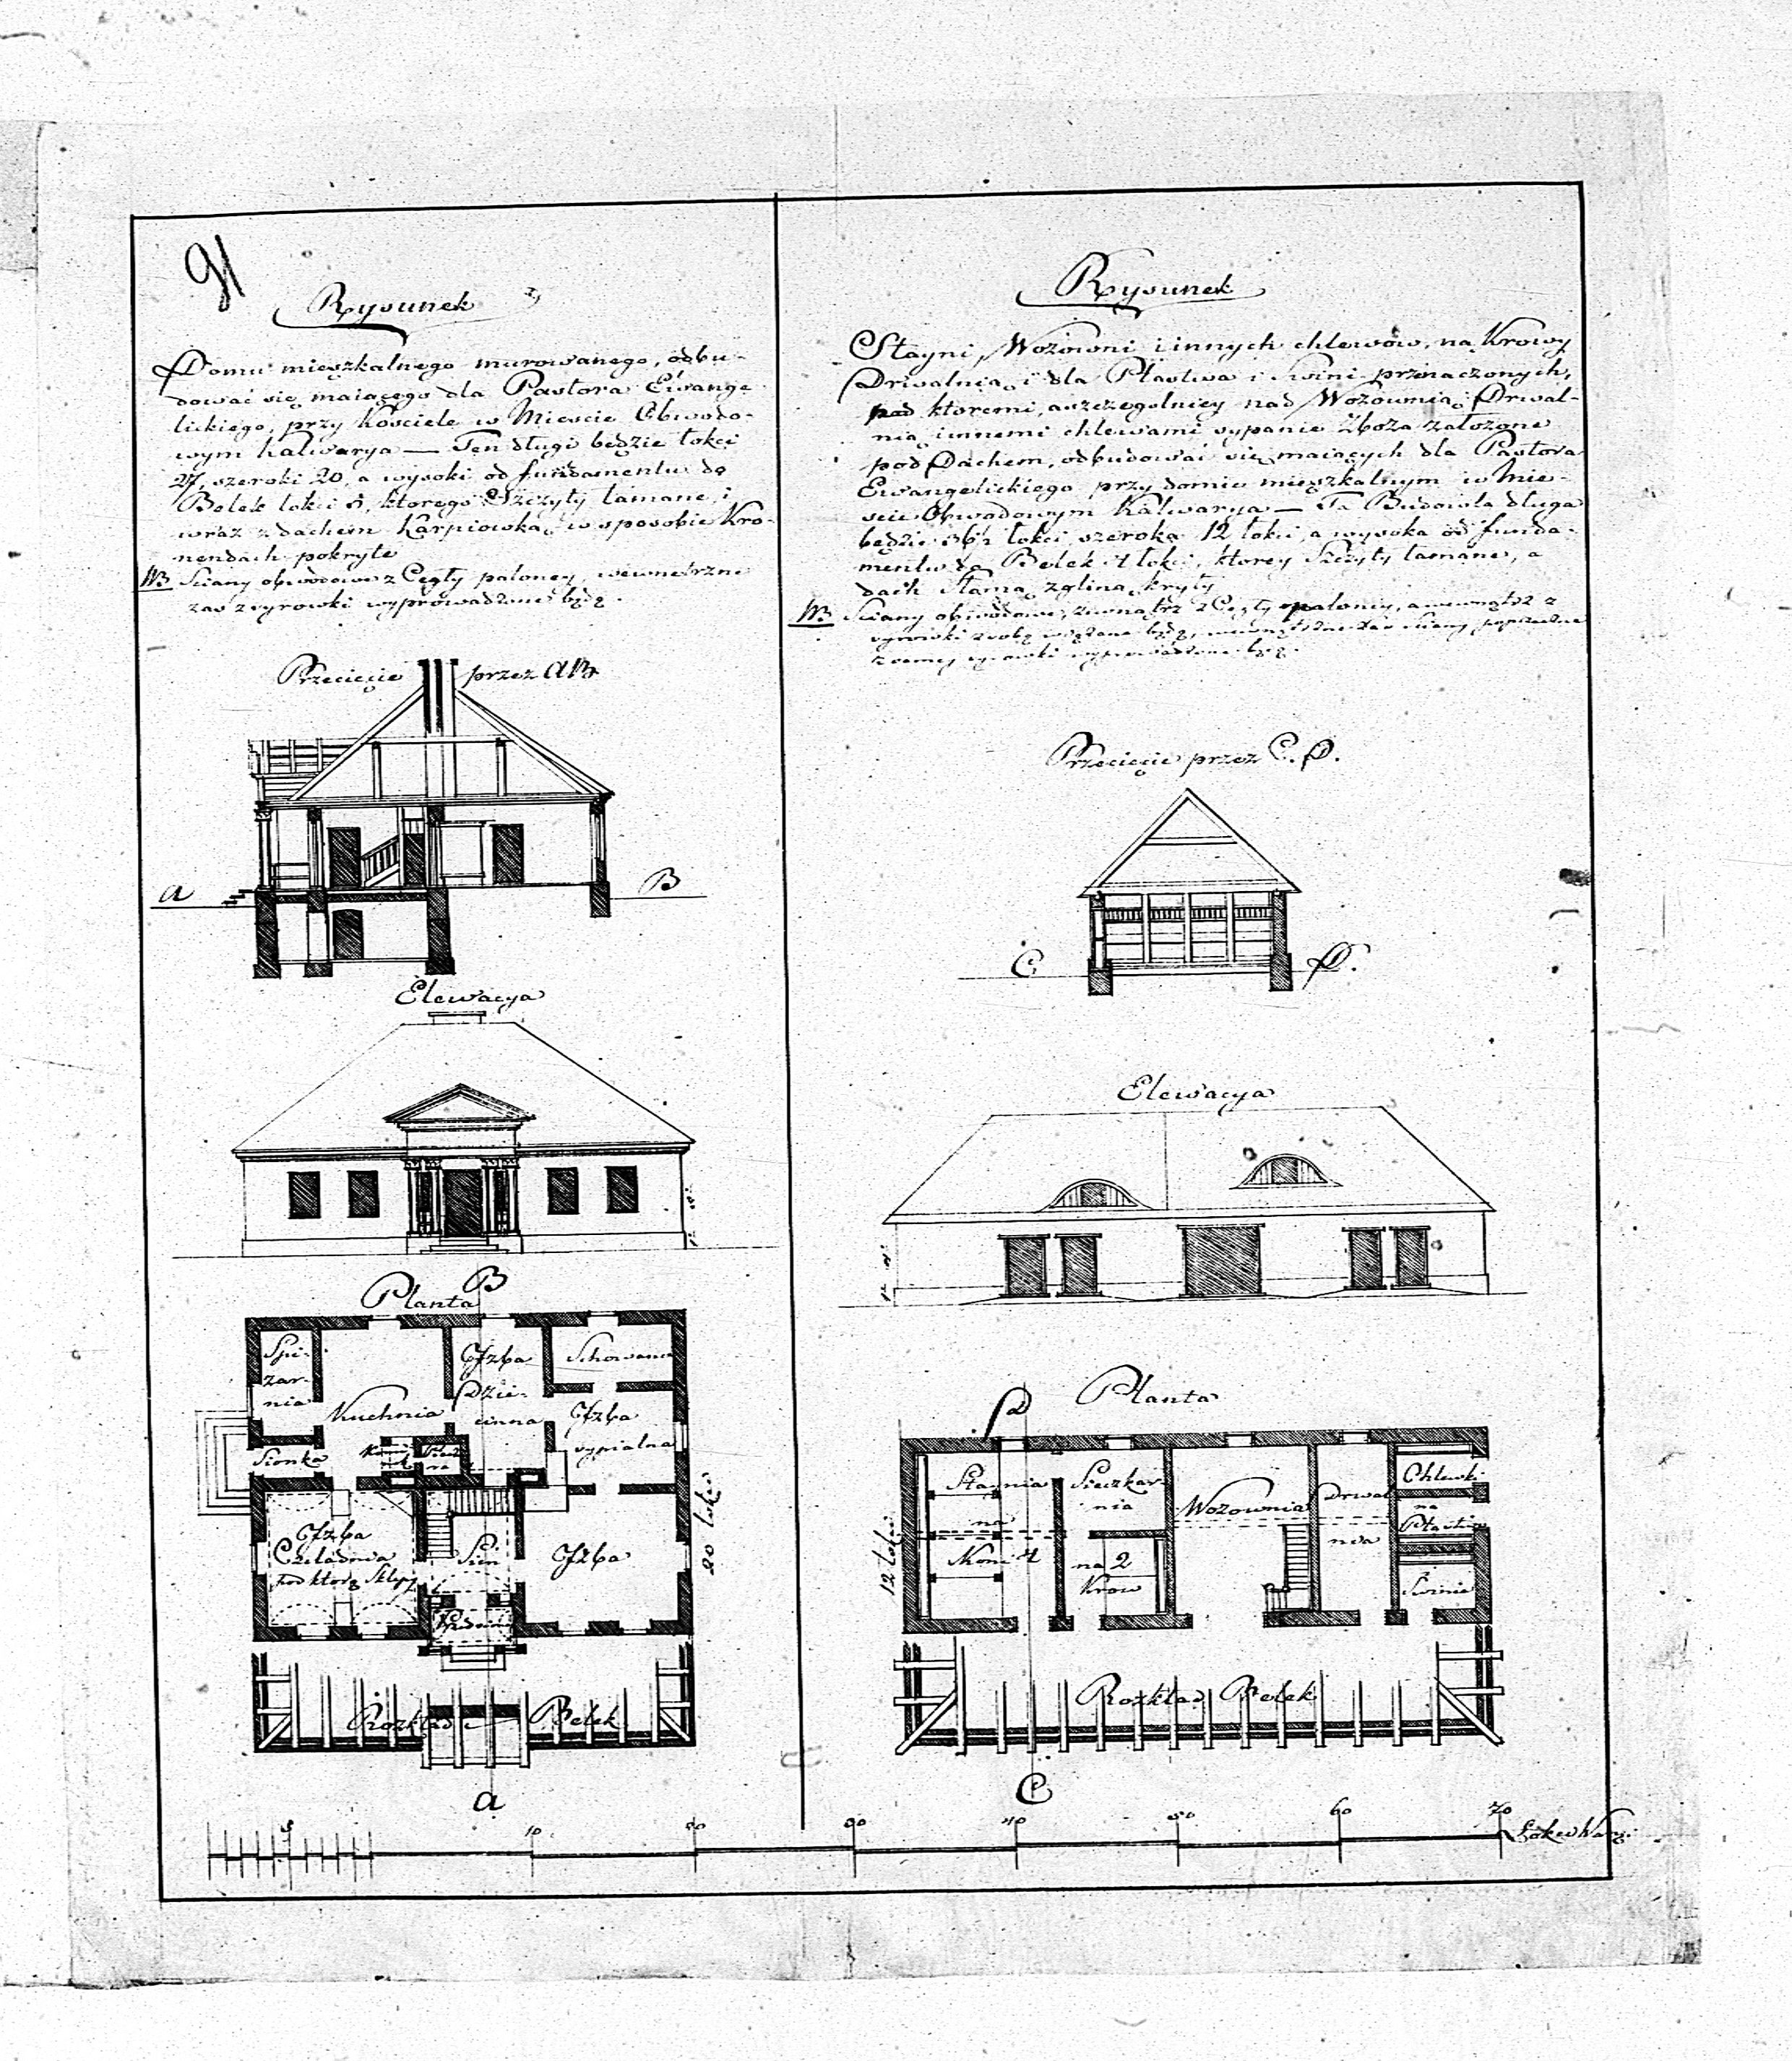 91
Rysunek
Domu mieszkalnego murowanego, odbu-
dować się maiącego dla Pastora Ewange-
lickiego, przy Kościele w Mieście Obwodo-
wym Kalwarya — Ten długi będzie łokci
27, szeroki 20, a wysoki od fundamentu do
Belek łokci 8, ktorego Szczyty łamane, i
wraz z dachem Karpiowką, w sposobie Kro-
nendach pokryte
NB Sciany obwodowe z Cegły paloney, wewnętrzne
zas z syrowki wyprowadzone będą.
Przecięcie przez AB
A
B
Elewacya
Planta
B
Spi-
zar-
nia
Kuchnia
Izba
Dzie-
cinna
Schowanie
Izba
sypialna
Sionka
Izba
Czeladnia
pod ktorą Sklepy
Sień
Izba
20 łokci
Rozkład Belek
A
Rysunek
Stayni, Wozowni i innych chlewów, na Krowy
Drwalnią, i dla Ptastwa i Swini przeznaczonych,
pod ktoremi, a szczegolniey nad Wozownią, Drwal-
nią, i innemi chlewami sypanie Zboża założone
pod Dachem, odbudować się maiących dla Pastora
Ewangelickiego przy domie mieszkalnym w Mie-
scie Obwodowym Kalwarya — Ta Budowla długa
będzie 36½ łokci szeroka 12 łokci, a wysoka od funda-
mentu do Belek łokci, ktorey Szczyty łamane, a
dach Słomą z gliną kryty
NB. Sciany obwodowe, zewnątrz z Cegły paloney, a wewnątrz z
syrowki z sobą wiązane będą, wewnętrzne zas Sciany poprzeczne
z samey syrowki wyprowadzone będą.
Przecięcie przez C. D.
C
D.
Elewacya
Planta
D
Staynia
na
Koni 4
Sieczkar-
nia
na 2
Krow
Wozownia
Drwal
nia
Chlewki
na
Ptastwo
Swinie
12 łokci
Rozkład Belek
C
5 10 20 30 40 50 60 70